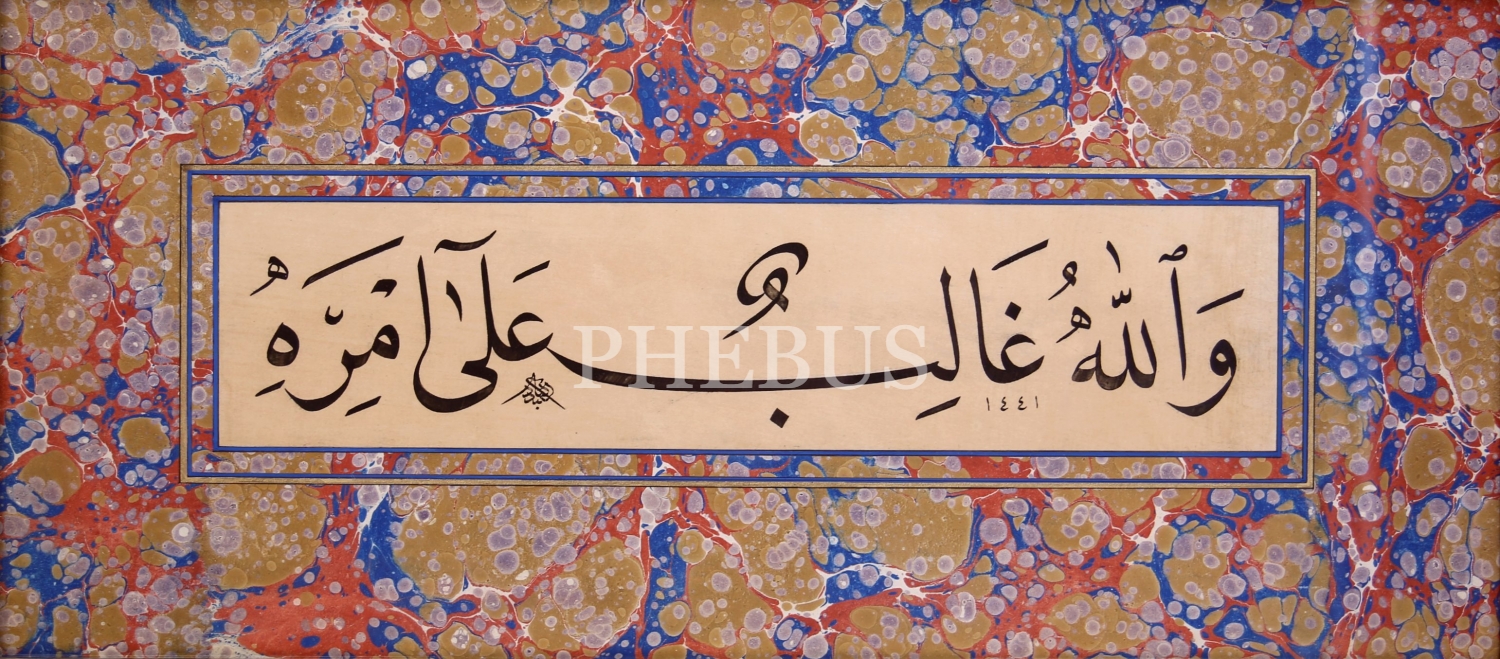 وَٱللّٰهُ غَالِبٌ عَلٰٓى اَمْرِهِ
١٤٤١
PHEBUS